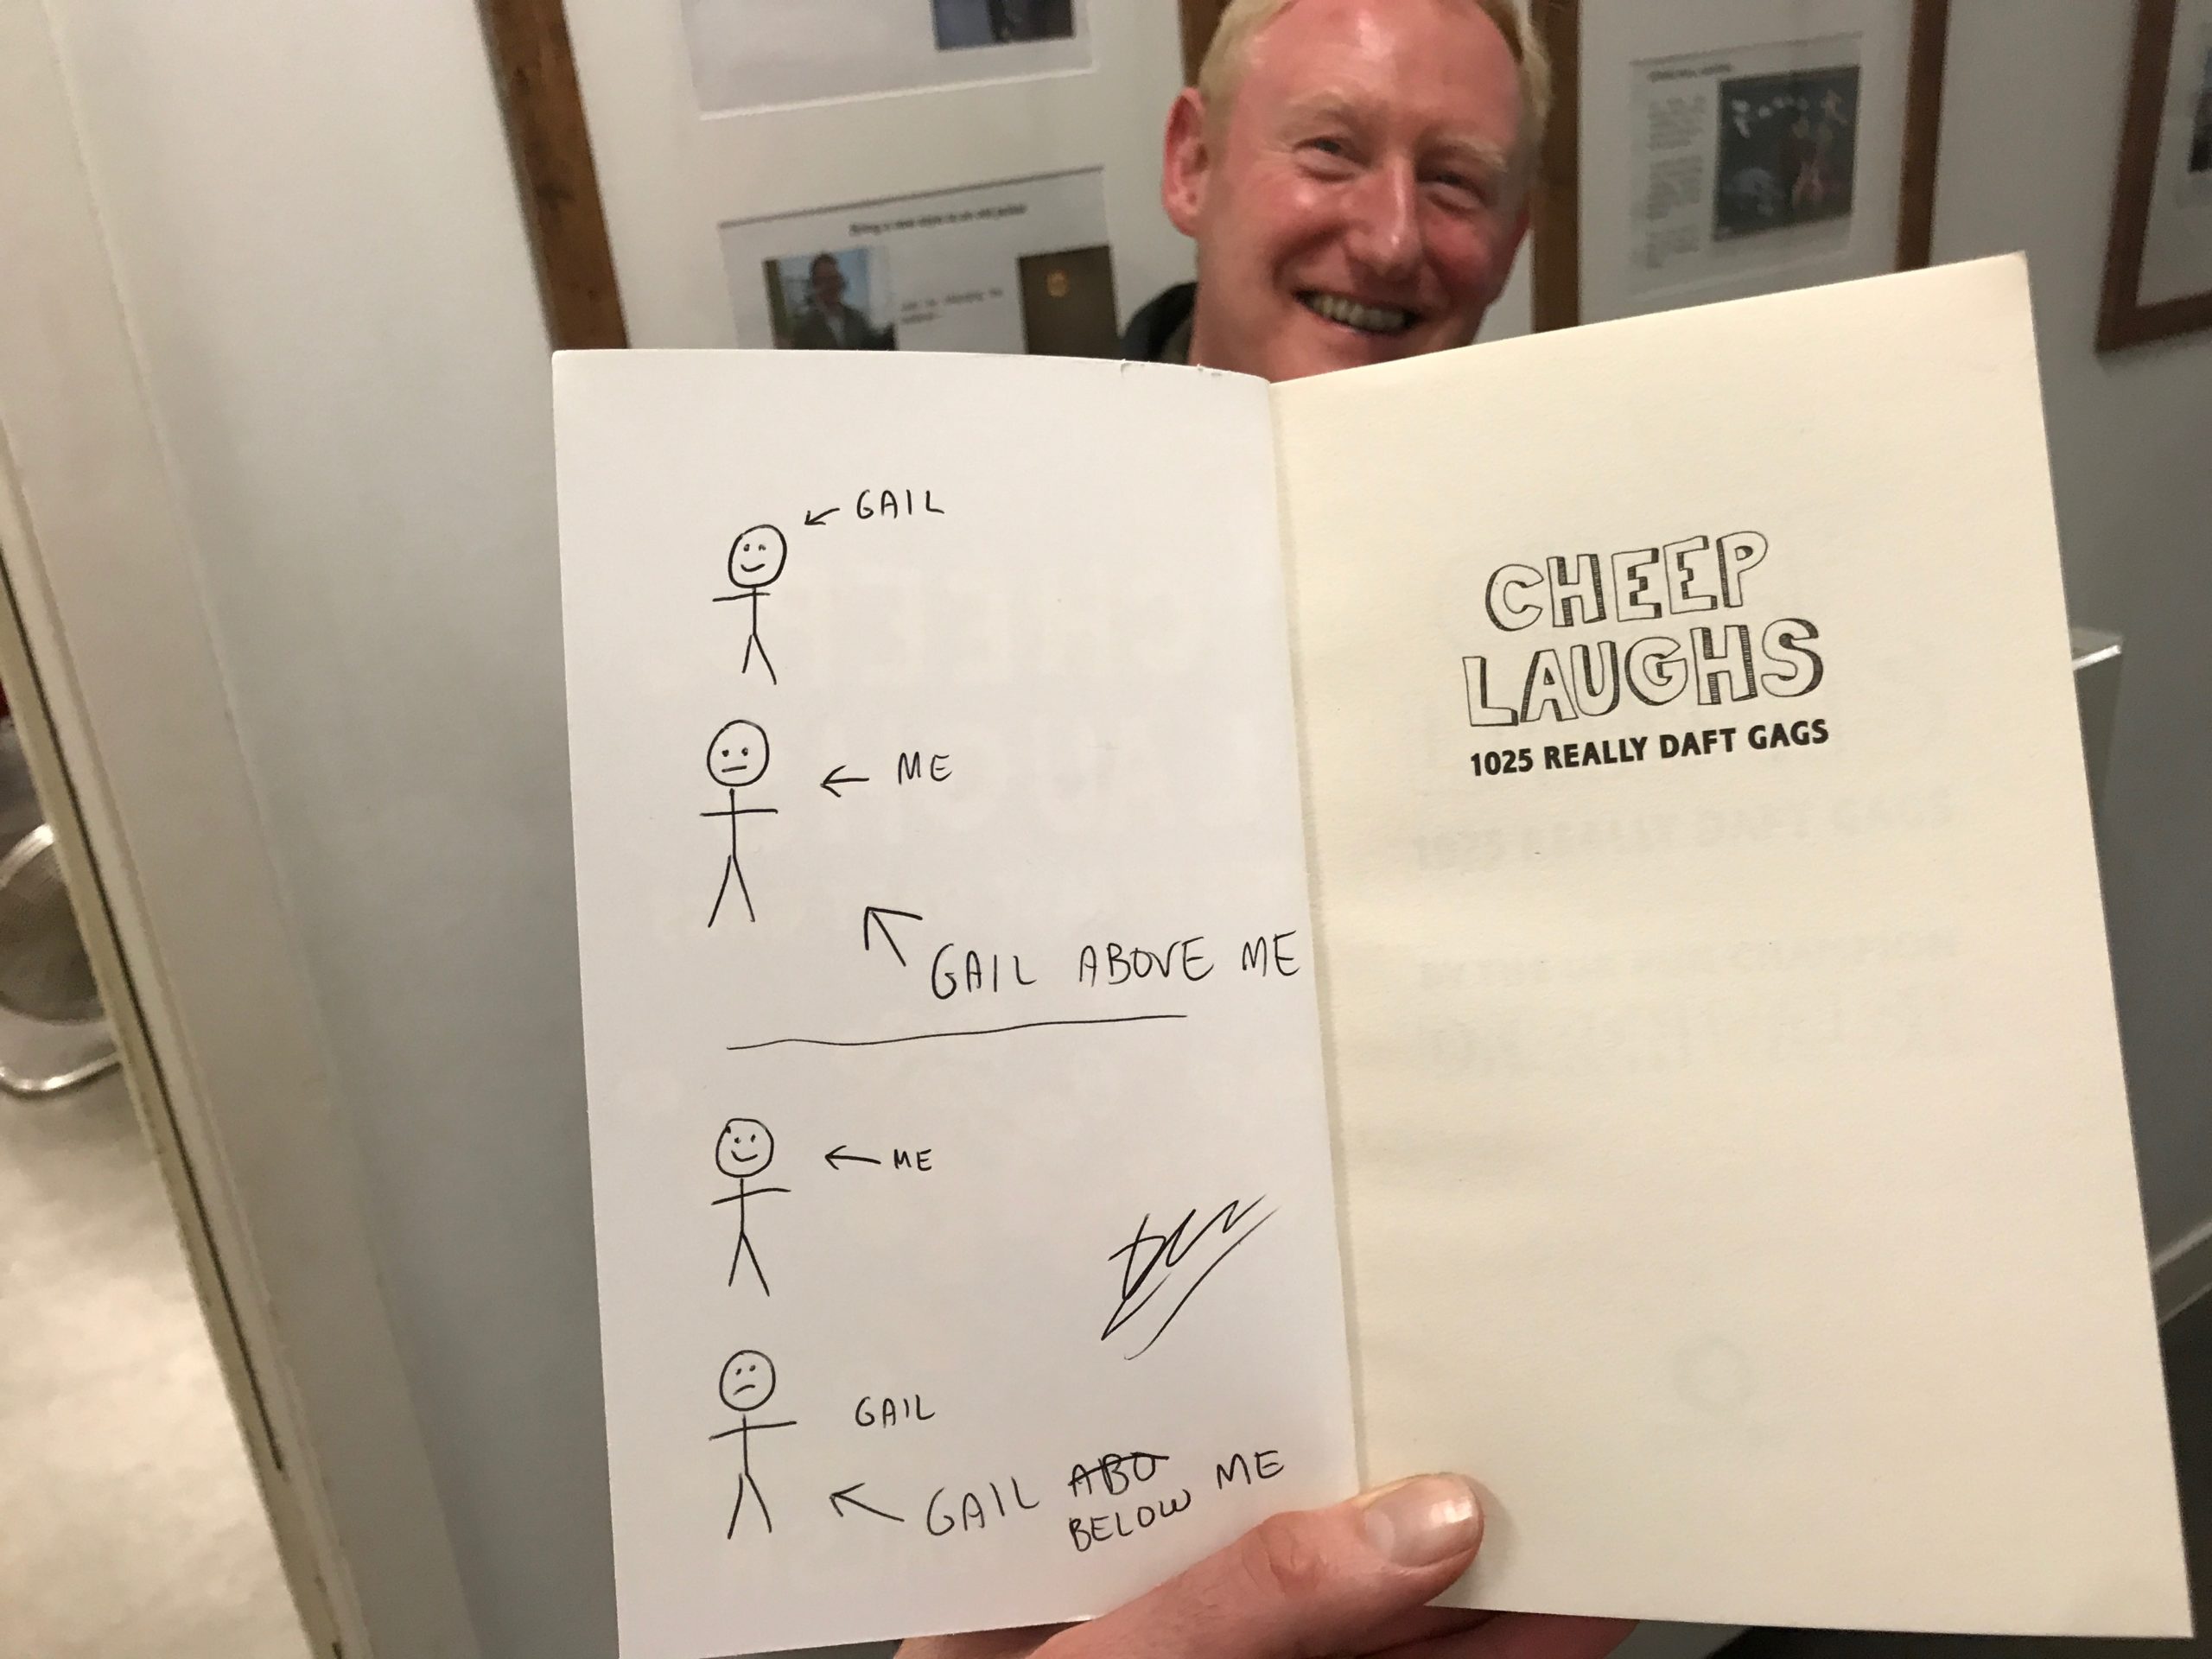 GAIL
ME
GAIL ABOVE ME
ME
GAIL
GAIL ABO ME
BELOW
CHEEP
LAUGHS
1025 REALLY DAFT GAGS